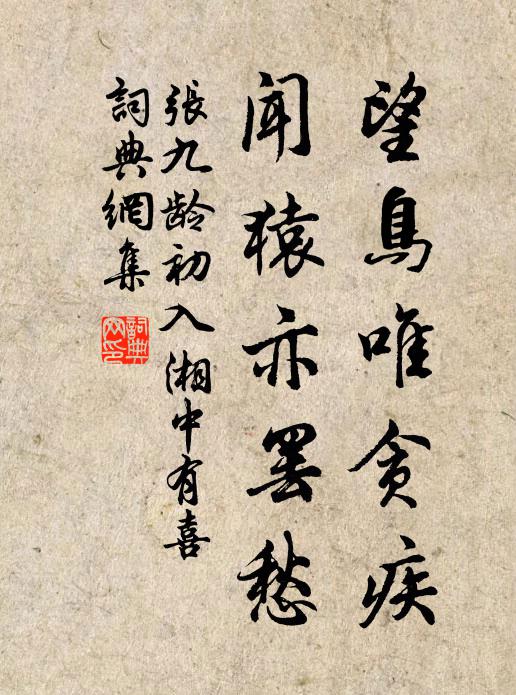 望鳥唯貪疾
聞猿亦罷愁
張九龄初入湘中有喜
詞典網集
詞典
网印